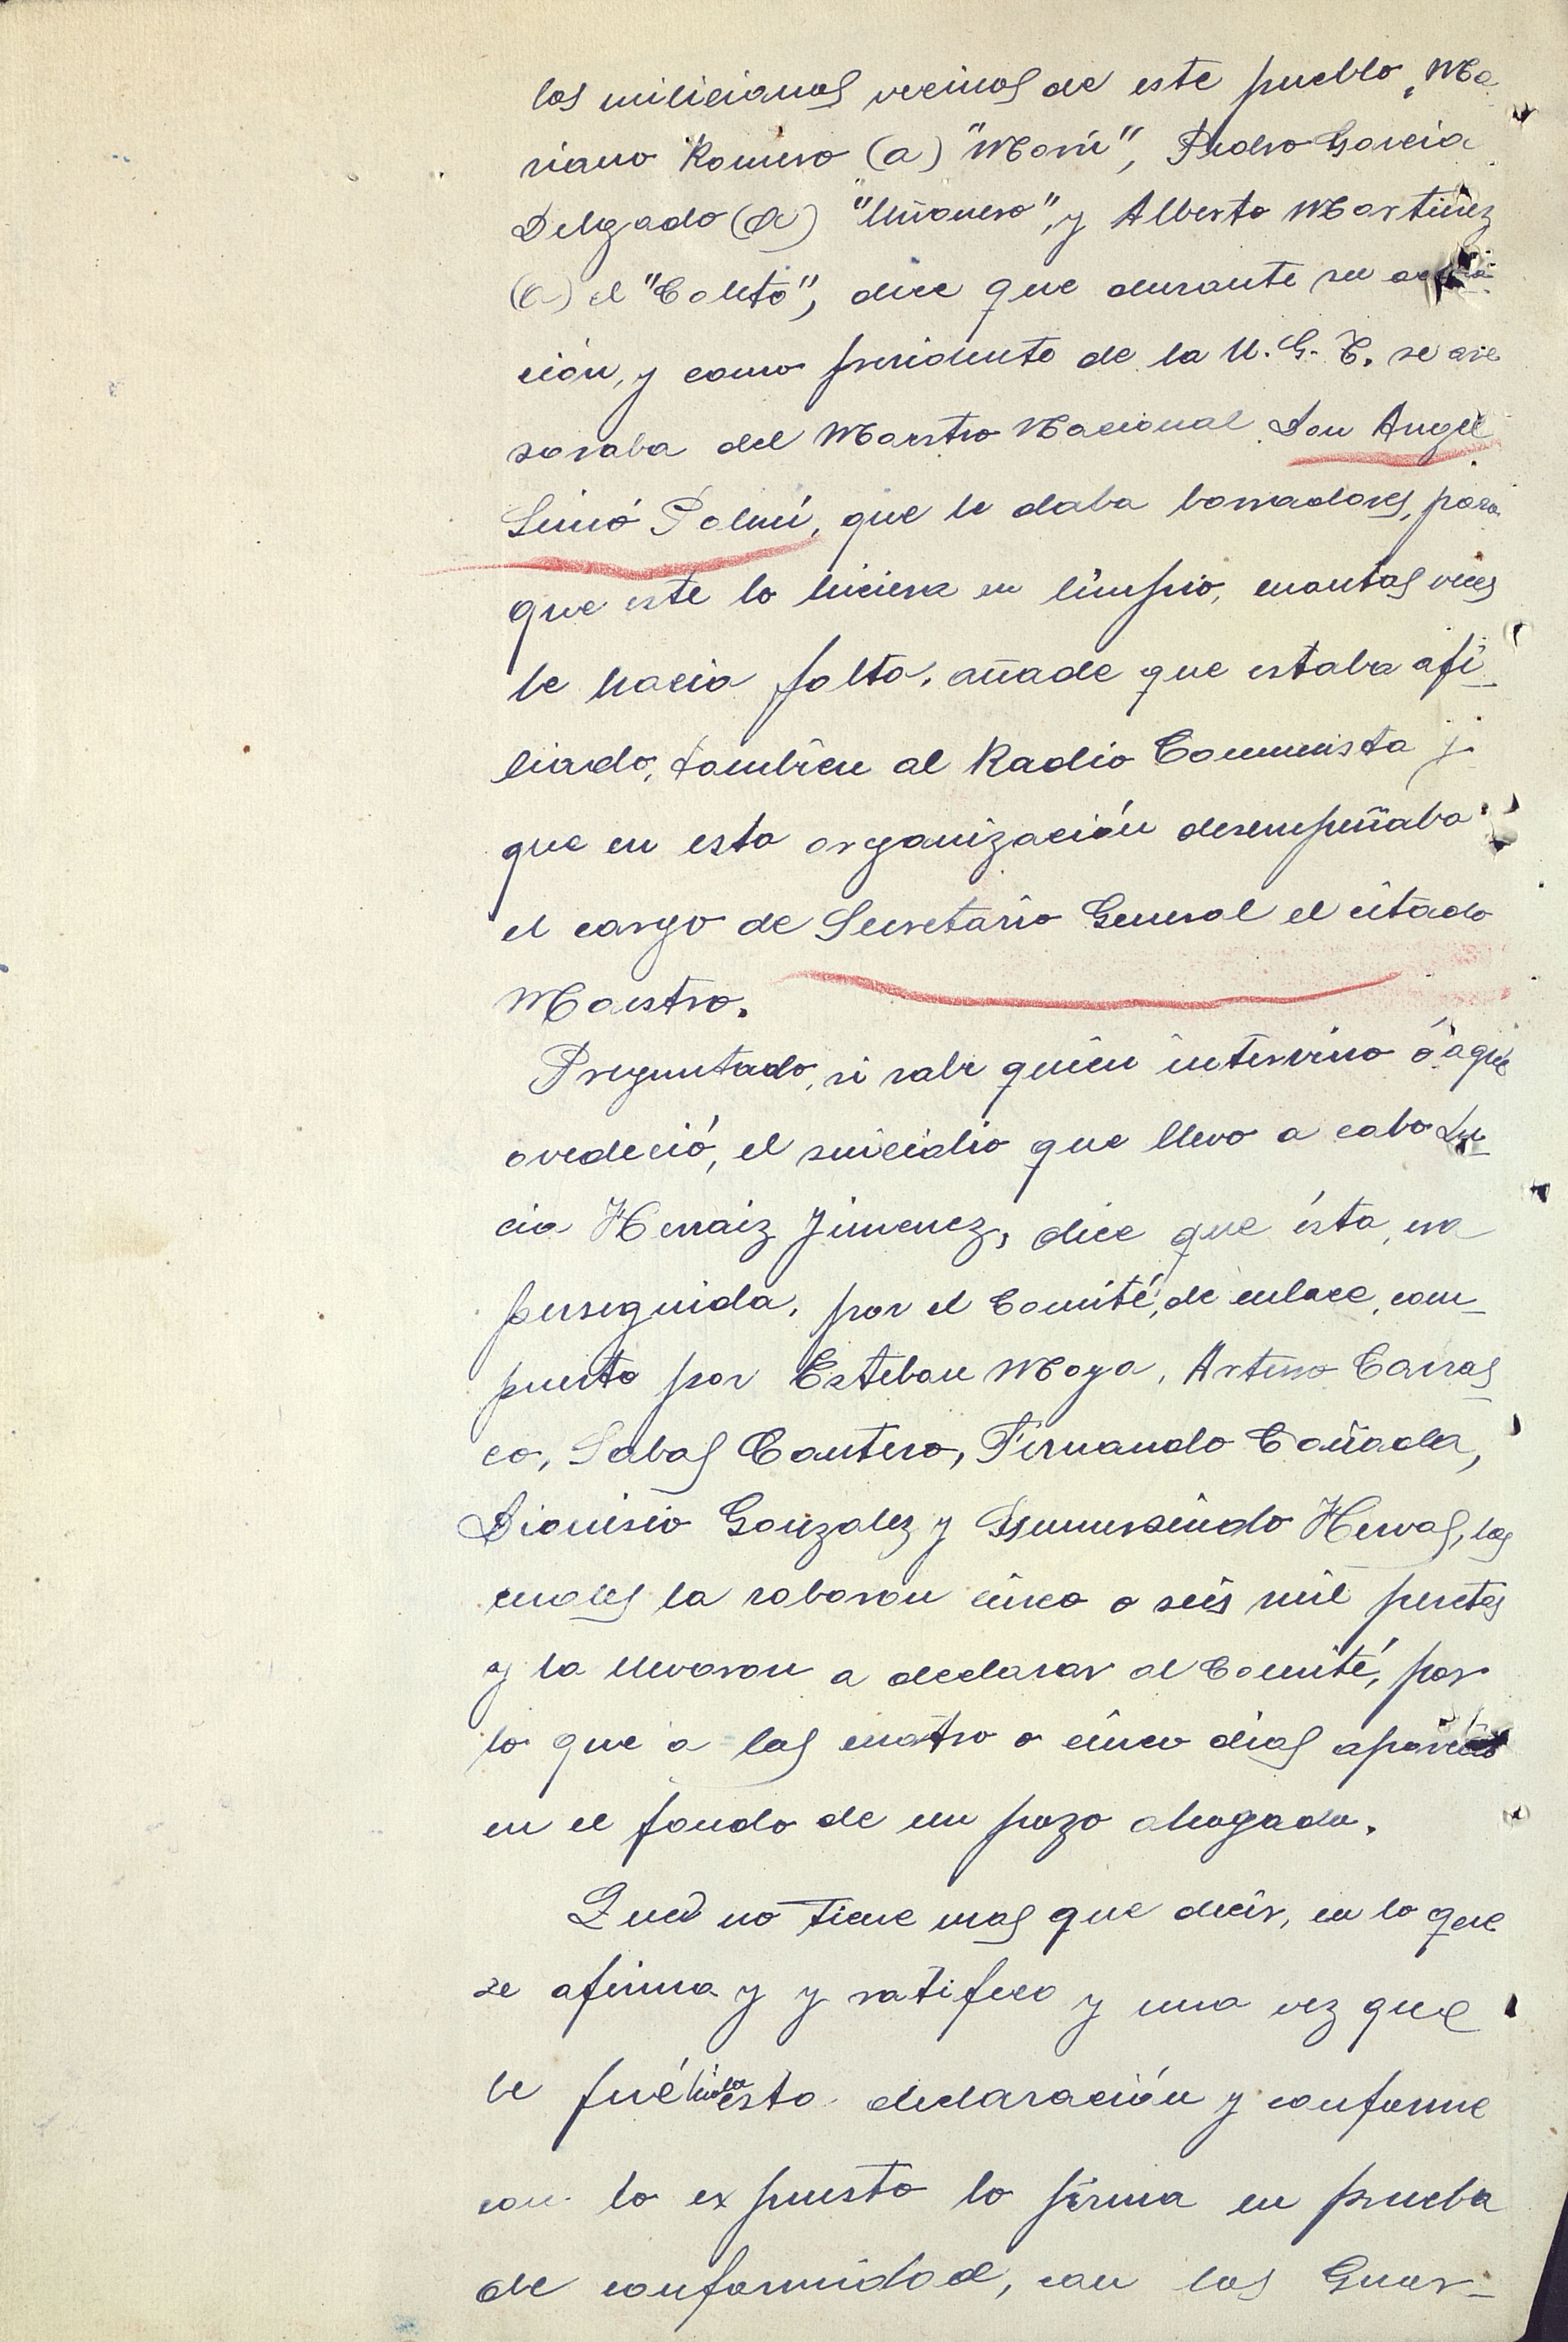 los milicianos vecinos de este pueblo, Ma
riano Romero (a) "Morú", Pedro Garcia
Delgado (a) "Uñanero", y Alberto Martinez
(a) el "Coleto", dice que durante su actua
ción, y como presidente de la U.G.T. se ase
soraba del Maestro Nacional Don Angel
Simó Polmí, que le daba borradores, para
que este lo hiciera en limpio, cuantas veces
le hacia falta, añade que estaba afi_
liado, tambien al Radio Comunista y
que en esta organización desempeñaba
el cargo de Secretario General el citado
Maestro.
Preguntado, si sabe quien intervino ó a que
ovedeció, el suicidio que llevo a cabo Lu_
cia Herraiz Jimenez, dice que ésta, era
perseguida, por el Comité, de enlace, com_
puesto por Esteban Moya, Arturo Carras
co, Sabas Cantero, Fernando Cañada,
Dionisio Gonzalez y Gumersindo Hervas, los
cuales la robaron cinco o seis mil pesetas
y la llevaron a declarar al Comité, por
lo que a las cuatro o cinco dias aparecio
en el fondo de un pozo ahogada.
Que no tiene mas que decir, en lo que
se afirma y y ratifica y una vez que
le fué leida esta declaración y conforme
con lo expuesto lo firma en prueba
de conformidad, con los Guar_